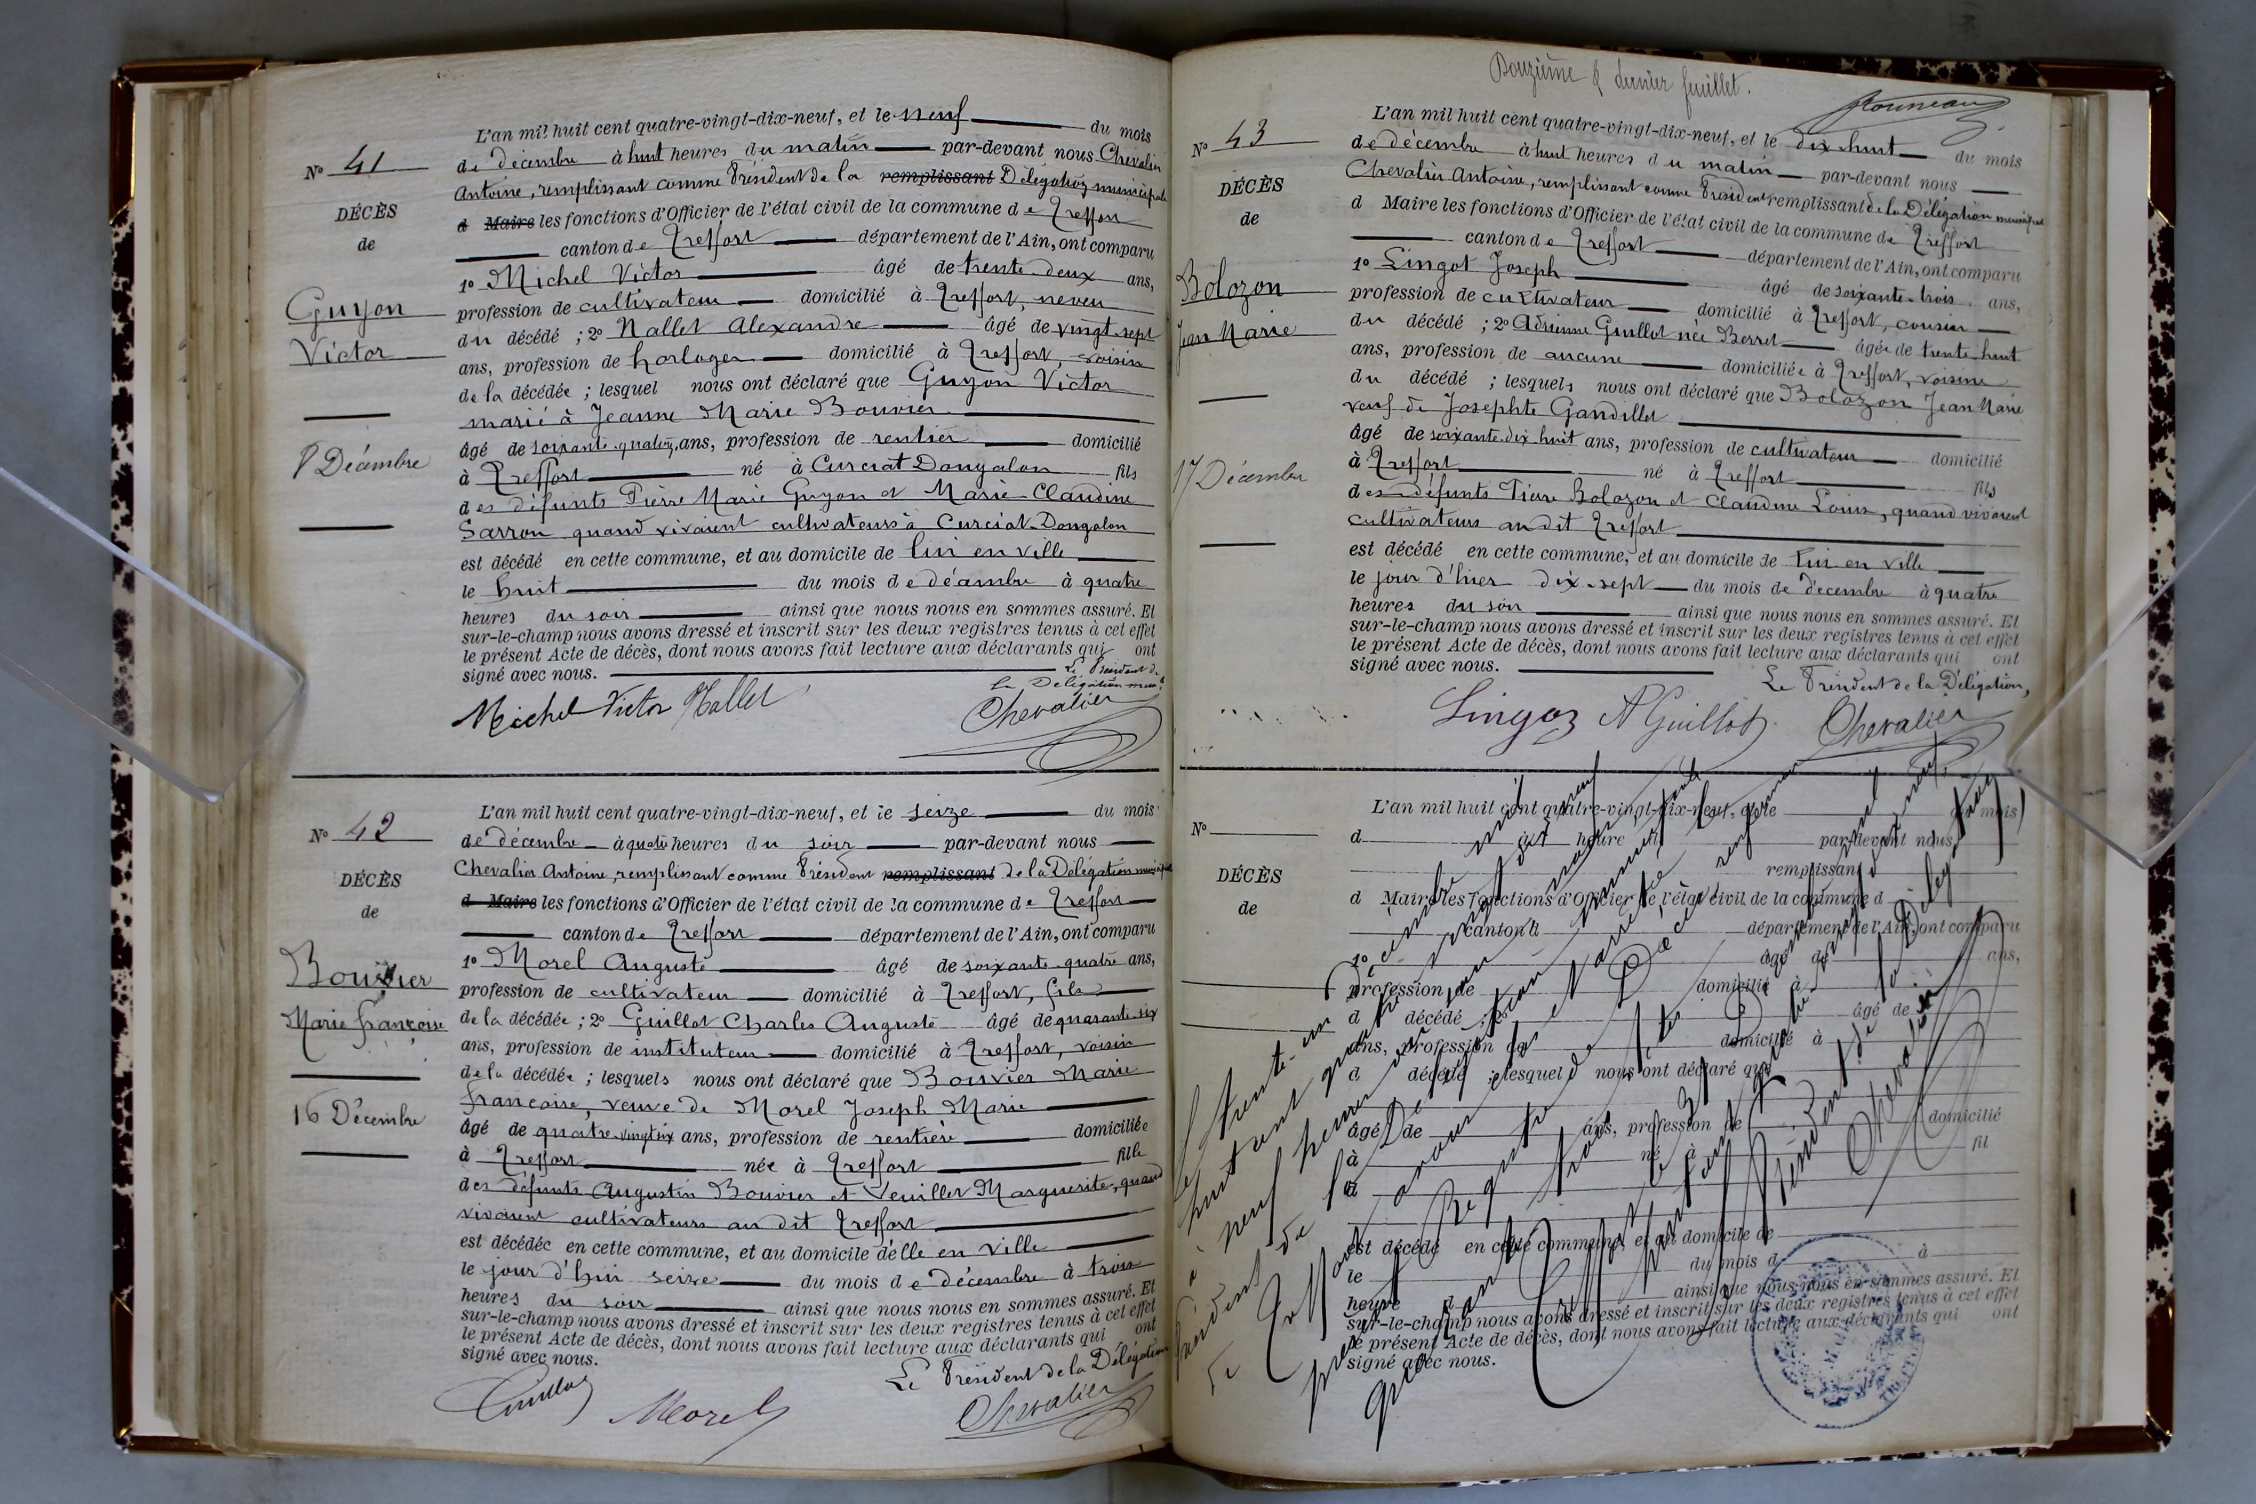 L'an mil huit cent quatre-vingt-dix-neuf, et le neuf du mois
N° 41
de décembre à huit heures du matin par-devant nous Chevalier
Antoine, remplissant comme Président de la remplissant Délégation municipale
DÉCÈS
d Maire les fonctions d'Officier de l'état civil de la commune de Treffort
de
canton de Treffort département de l'Ain, ont comparu
1° Michel Victor âgé de trente-deux ans,
Guyon
profession de cultivateur domicilié à Treffort, neveu
du décédé ; 2° Nallet Alexandre âgé de vingt-sept
Victor
ans, profession de horloger domicilié à Treffort, voisin
de la décédée ; lesquel nous ont déclaré que Guyon Victor
marié à Jeanne Marie Bouvier
âgé de soixante-quatorze ans, profession de rentier domicilié
8 Décembre
à Treffort né à Curciat Dongalon fils
des défunts Pierre Marie Guyon et Marie Claudine
Sarron quand vivaient cultivateurs à Curciat-Dongalon
est décédé en cette commune, et au domicile de lui en ville
le huit du mois de décembre à quatre
heures du soir ainsi que nous nous en sommes assuré. Et
sur-le-champ nous avons dressé et inscrit sur les deux registres tenus à cet effet
le présent Acte de décès, dont nous avons fait lecture aux déclarants qui ont
signé avec nous.
Le Président de
la Délégation munle
Michel Victor Nallet Chevalier
L'an mil huit cent quatre-vingt-dix-neuf, et le seize du mois
N° 42
de décembre à quatre heures du soir par-devant nous
Chevalier Antoine, remplissant comme Président remplissant de la Délégation municipale
DÉCÈS
d Maire les fonctions d'Officier de l'état civil de la commune de Treffort
de
canton de Treffort département de l'Ain, ont comparu
1° Morel Auguste âgé de soixante-quatre ans,
Bouvier
profession de cultivateur domicilié à Treffort, fils
Marie françoise
de la décédée ; 2° Guillot Charles Auguste âgé de quarante-six
ans, profession de instituteur domicilié à Treffort, voisin
de la décédée ; lesquels nous ont déclaré que Bouvier Marie
françoise, veuve de Morel Joseph Marie
16 Décembre
âgé de quatre-vingt six ans, profession de rentière domiciliée
à Treffort née à Treffort fille
des défunts Augustin Bouvier et Veuillet Marguerite, quand
vivaient cultivateurs au dit Treffort
est décédée en cette commune, et au domicile d'elle en ville
le jour d'hui seize du mois de décembre à trois
heures du soir ainsi que nous nous en sommes assuré. Et
sur-le-champ nous avons dressé et inscrit sur les deux registres tenus à cet effet
le présent Acte de décès, dont nous avons fait lecture aux déclarants qui ont
signé avec nous.
Le Président de la Délégation
Guillot Morel Chevalier
Douzième & dernier feuillet.
L'an mil huit cent quatre-vingt-dix-neuf, et le dix-huit du mois
N° 43
de décembre à huit heures du matin par-devant nous
Chevalier Antoine, remplissant comme Président remplissant de la Délégation municipale
DÉCÈS
d Maire les fonctions d'Officier de l'état civil de la commune de Treffort
de
canton de Treffort département de l'Ain, ont comparu
1° Lingot Joseph âgé de soixante-trois ans,
Bolozon
profession de cultivateur domicilié à Treffort, cousin
Jean Marie
du décédé ; 2° Adrienne Guillot née Berret âgée de trente-huit
ans, profession de aucune domiciliée à Treffort, voisine
du décédé ; lesquels nous ont déclaré que Bolozon Jean Marie
veuf de Josephte Gandillet
âgé de soixante-dix huit ans, profession de cultivateur domicilié
17 Décembre
à Treffort né à Treffort fils
des défunts Pierre Bolozon et Claudine Louis, quand vivaient
cultivateurs au dit Treffort
est décédé en cette commune, et au domicile de lui en ville
le jour d'hier dix-sept du mois de décembre à quatre
heures du soir ainsi que nous nous en sommes assuré. Et
sur-le-champ nous avons dressé et inscrit sur les deux registres tenus à cet effet
le présent Acte de décès, dont nous avons fait lecture aux déclarants qui ont
signé avec nous.
Le Président de la Délégation,
Lingot A Guillot Chevalier
L'an mil huit cent quatre-vingt-dix-neuf, et le du mois
N°
d à heure d par-devant nous
remplissant
DÉCÈS
d Maire les fonctions d'Officier de l'état civil de la commune d
de
canton d département de l'Ain, ont comparu
1° âgé de ans,
profession de domicilié à
d décédé ; 2° âgé de
ans, profession de domicilié à
d décédé ; lesquel nous ont déclaré que
âgé de ans, profession de domicilié
à né à fil
d
est décédé en cette commune, et au domicile de
le du mois d à
heure d ainsi que nous nous en sommes assuré. Et
sur-le-champ nous avons dressé et inscrit sur les deux registres tenus à cet effet
le présent Acte de décès, dont nous avons fait lecture aux déclarants qui ont
signé avec nous.
Le trente-un décembre mil
huit cent quatre vingt dix neuf
à neuf heures du
Président de la Délégation
de Treffort avons clos et arrêté le
présent Registre de Décès
quarante trois
Treffort le
Président de la Délégation
Chevalier